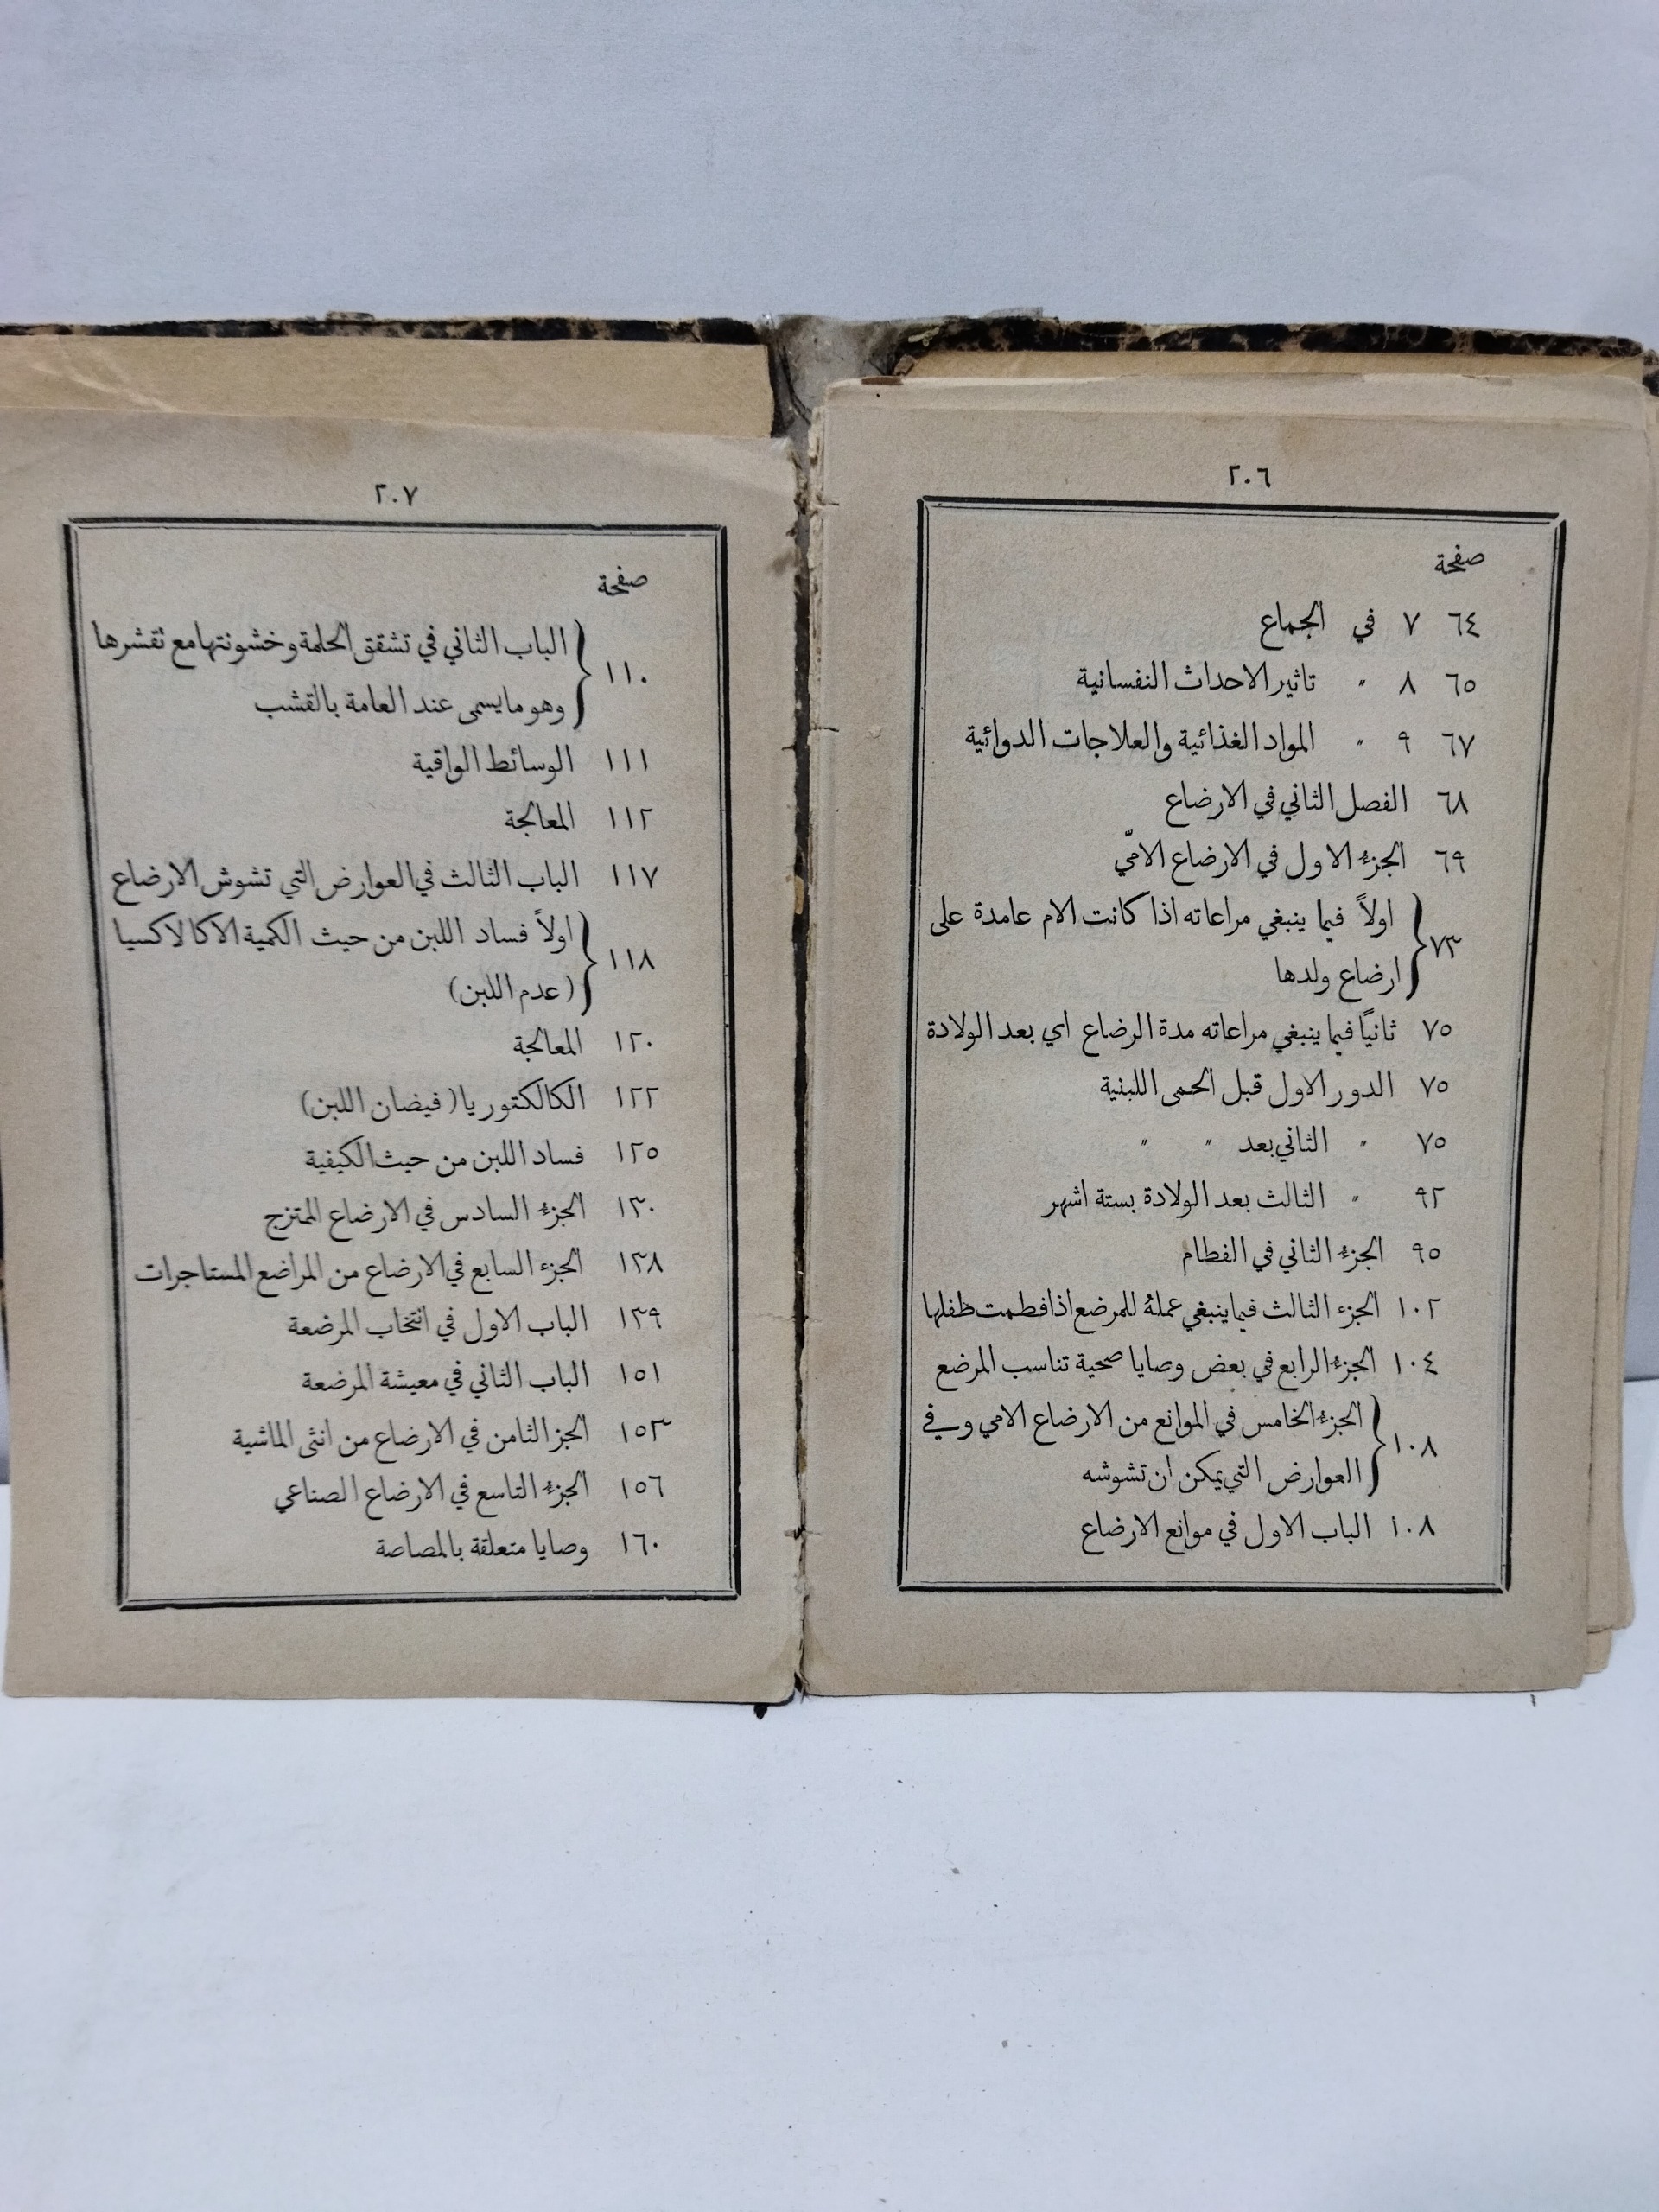 ٢٠٦
صفحة
٦٤ ٧ في الجماع
٦٥ ٨ " تاثير الاحداث النفسانية
٦٧ ٩ " المواد الغذائية والعلاجات الدوائية
٦٨ الفصل الثاني في الارضاع
٦٩ الجزء الاول في الارضاع الامّي
٧٣ { اولاً فيما ينبغي مراعاته اذا كانت الام عامدة على
ارضاع ولدها
٧٥ ثانيًا فيما ينبغي مراعاته مدة الرضاع اي بعد الولادة
٧٥ الدور الاول قبل الحمى اللبنية
٧٥ " الثاني بعد " "
٩٢ " الثالث بعد الولادة بستة اشهر
٩٥ الجزء الثاني في الفطام
١٠٢ الجزء الثالث فيما ينبغي عملهُ للمرضع اذا فطمت طفلها
١٠٤ الجزء الرابع في بعض وصايا صحية تناسب المرضع
١٠٨ { الجزء الخامس في الموانع من الارضاع الامي وفي
العوارض التي يمكن ان تشوشه
١٠٨ الباب الاول في موانع الارضاع
٢٠٧
صفحة
١١٠ { الباب الثاني في تشقق الحلمة وخشونتها مع تقشرها
وهو ما يسمى عند العامة بالقشب
١١١ الوسائط الواقية
١١٢ المعالجة
١١٧ الباب الثالث في العوارض التي تشوش الارضاع
١١٨ { اولاً فساد اللبن من حيث الكمية الاكالاكسيا
(عدم اللبن)
١٢٠ المعالجة
١٢٢ الكالكتوريا (فيضان اللبن)
١٢٥ فساد اللبن من حيث الكيفية
١٣٠ الجزء السادس في الارضاع الممتزج
١٣٨ الجزء السابع في الارضاع من المراضع المستاجرات
١٣٩ الباب الاول في انتخاب المرضعة
١٥١ الباب الثاني في معيشة المرضعة
١٥٣ الجز الثامن في الارضاع من انثى الماشية
١٥٦ الجزء التاسع في الارضاع الصناعي
١٦٠ وصايا متعلقة بالمصاصة